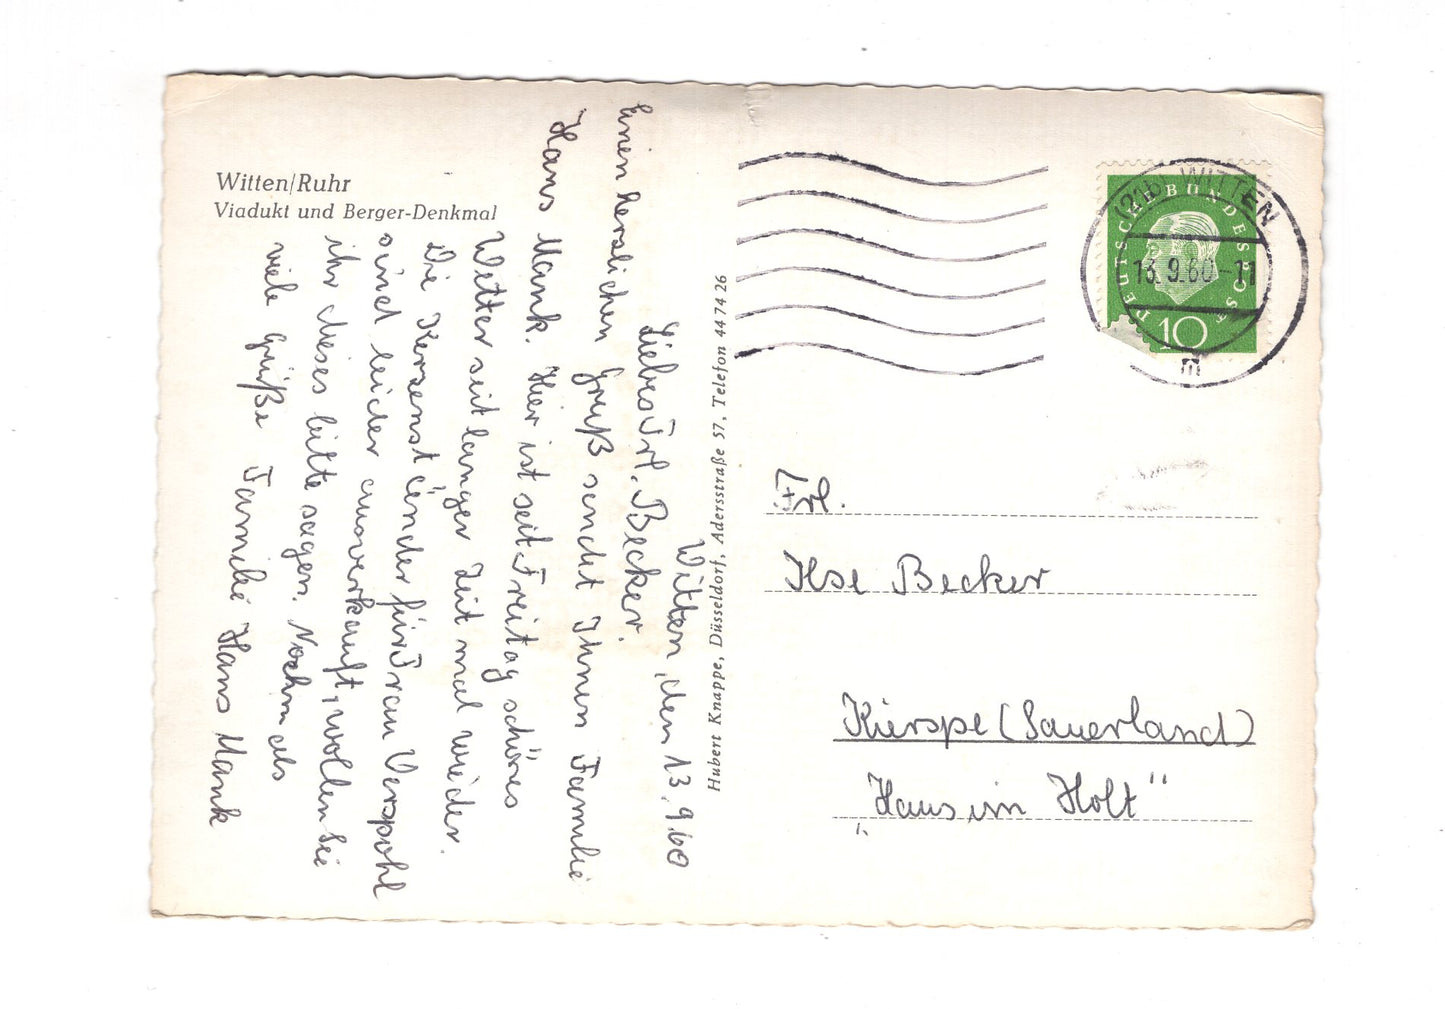 Witten/Ruhr
Viadukt und Berger-Denkmal
Witten, den 13.9.60
Liebes Frl. Becker.
Einen herzlichen Gruß sendet Ihnen Familie
Hans Mank. Hier ist seit Freitag schönes
Wetter seit langer Zeit mal wieder.
Die Kerzenständer für Frau Verspohl
sind leider ausverkauft, wollen Sie
ihr dieses bitte sagen. Nochmals
viele Grüße Familie Hans Mank
Hubert Knappe, Düsseldorf, Adersstraße 57, Telefon 44 74 26
(21b) WITTEN
13.9.60-11
m
DEUTSCHE BUNDESPOST
10
Frl.
Ilse Becker
Kierspe (Sauerland)
„Haus im Holt"